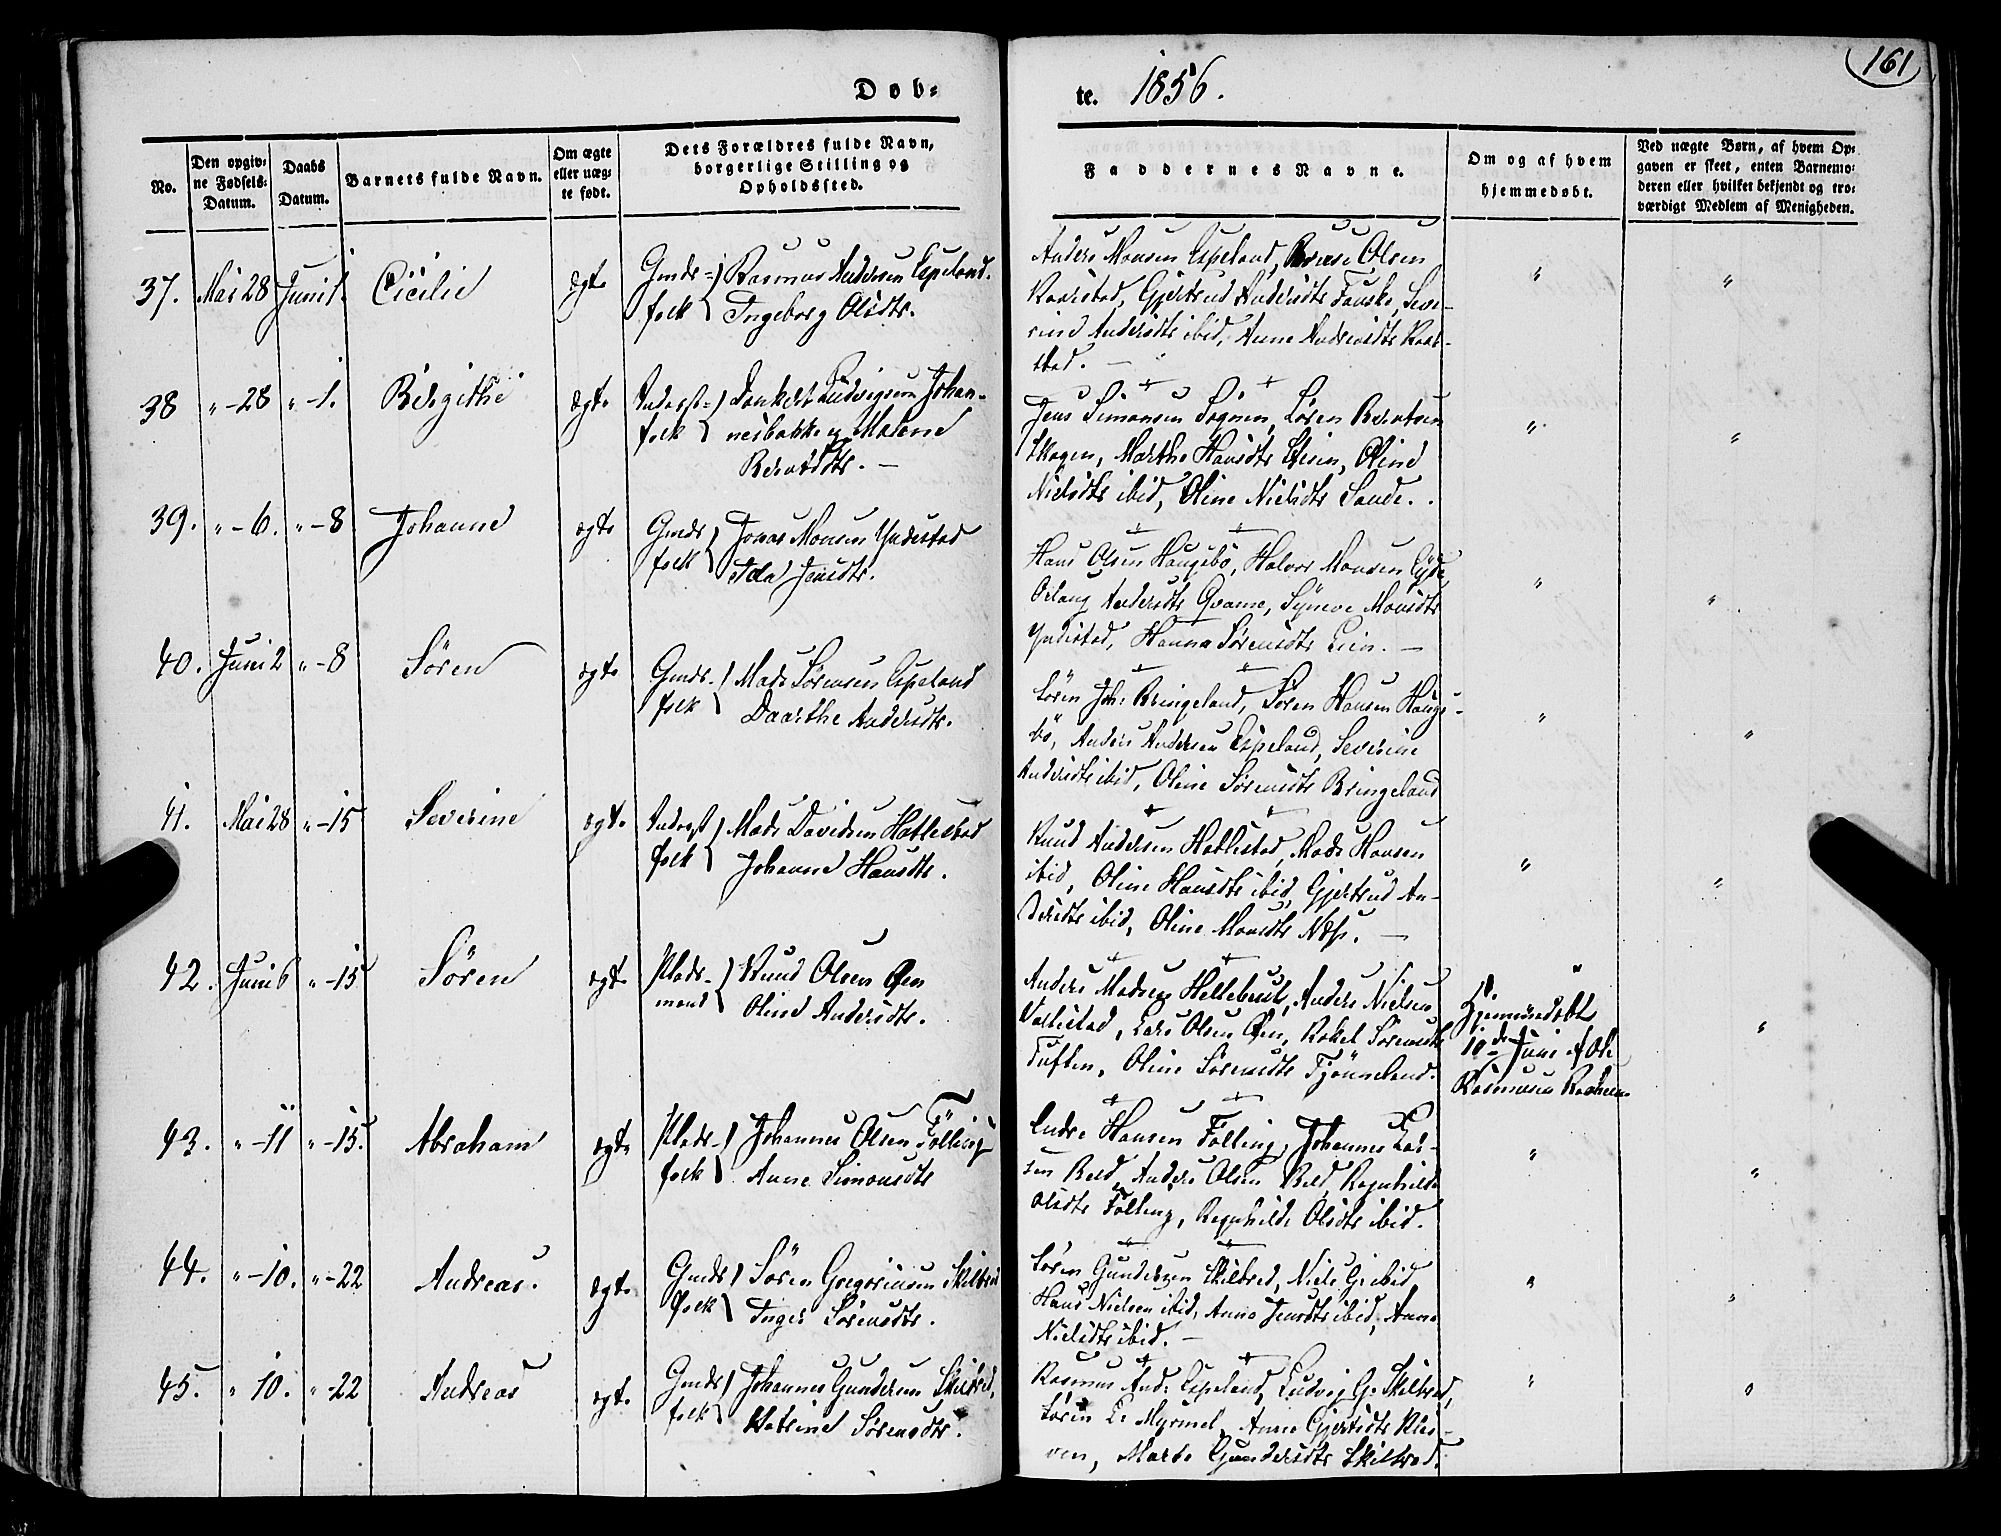 161
Døb-
te. 1856.
No.
Den opgiv-
ne Fødsels-
Datum.
Daabs
Datum.
Barnets fulde Navn.
Om ægte
eller uæg-
te født.
Dets Forældres fulde Navn,
borgerlige Stilling og
Opholdssted.
Faddernes Navne.
Om og af hvem
hjemmedøbt.
Ved uægte Børn, af hvem Op-
gaven er skeet, enten Barnemo-
deren eller hvilket bekjendt og tro-
værdigt Medlem af Menigheden.
37. Mai 28 Juni 1. Cicilie ægte Gmds- Rasmus Andersen Espeland.
folk Ingeborg Olsdtr.
Anders Monsen Espeland, Olsen
Gjertrud Andersdtr Fauske, Seve-
rine Andersdtr ibid, Anne
stad. —
" "
38 "-28 "-1. Birgithe ægte Inderst- Dankert Ludvigsen Johan-
folk nesbakke og Malene
Berntsdtr. —
Jens Simonsen Sognen, Søren Berntsen
Skagen, Marthe Hansdtr Oline
Nielsdtr ibid, Oline Nielsdtr Sande.
" "
39. "-6. "-8 Johanne ægte Gmds Jonas Monsen Yndestad
folk Ida Jensdtr.
Hans Olsen Haugebö, Halvor Monsen
Andersdtr Qvame, Synove Monsdtr
Yndestad, Hanna Sørensdtr
" "
40. Juni 2 "-8 Søren ægte Gmds- Mads Sørensen Espeland
folk Daarthe Andersdtr.
Søren Joh: Bringeland, Søren Hansen Hauge-
bö, Anders Andersen Espeland, Severine
Andersdtr ibid, Oline Sørensdtr Bringeland
" "
41. Mai 28 "-15 Severine ægte Inderst Mads Davidsen Hatlestad
folk Johanne Hansdtr.
Knud Andersen Hatlestad, Mads Hansen
ibid, Oline Hansdtr ibid, Gjertrud An-
dersdtr ibid, Oline Monsdtr Næss. —
" "
42. Juni 6 "-15 Søren ægte Plads- Knud Olsen Øen
mand Oline Andersdtr.
Anders Madsen Hellebust, Anders Nielsen
Vallestad, Lars Olsen Øen, Rakel Sørensdtr
Tuften, Oline Sørensdtr Tjønneland.
Hjemmedøbt
10de Juni af Ole
Rasmusen
"
43. "-11 "-15. Abraham ægte Plads- Johannes Olsen Fölling
folk Anne Simonsdtr
Endre Hansen Fölling, Johannes Lar-
sen Anders Olsen Ragnhilde
Olsdtr Fölling, Ragnhilde Olsdtr ibid.
" "
44. "-10. "-22 Andreas. ægte Gmds Søren Gregoriusen Skilbred
folk Inger Sørensdtr.
Søren Gundersen Skilbred, Niels G. ibid
Hans Nielsen ibid, Anne Jensdtr ibid, Anne
Nielsdtr ibid. —
" "
45. " 10. "-22 Andreas ægte Gmds Johannes Gundersen Skilbred,
folk Katrine Sørensdtr.
Rasmus And: Espeland, Ludvig G. Skilbred,
Søren L. Myrmel, Anne Gjertsdtr
ven, Marte Gundersdtr Skilbred.
" "